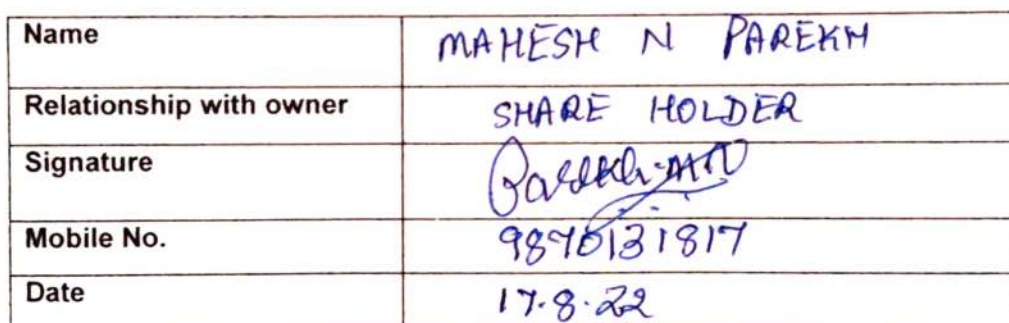 Name MAHESH N PAREKH
Relationship with owner SHARE HOLDER
Signature Parekh MN
Mobile No. 9870131817
Date 17.8.22